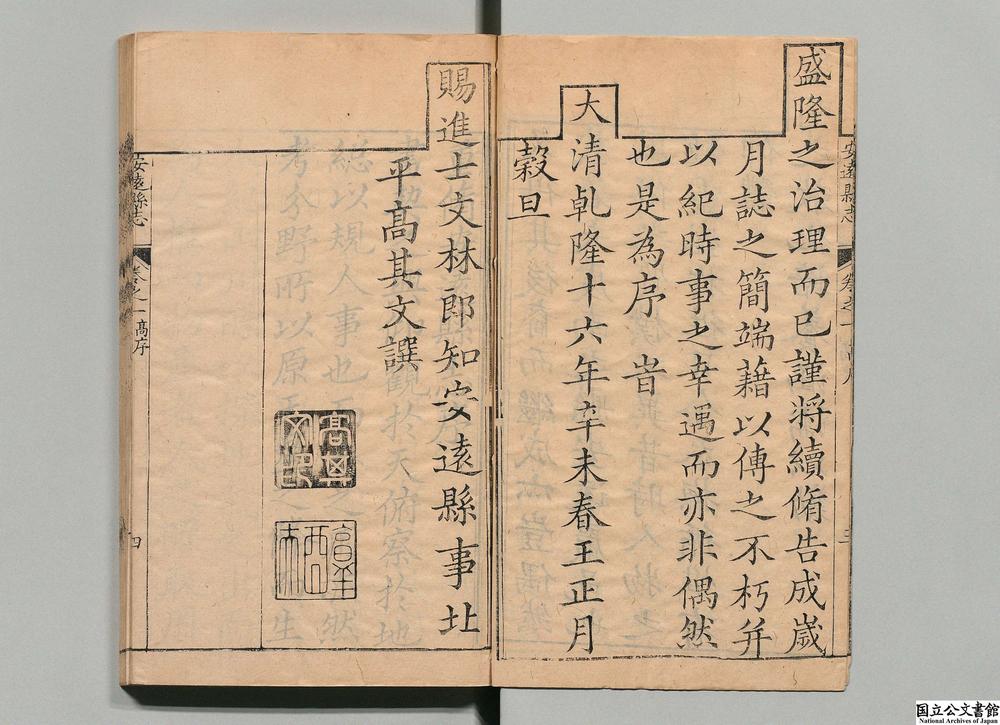 盛隆之治理而已謹將續脩告成歲
月誌之簡端藉以傳之不朽并
以紀時事之幸遇而亦非偶然
也是為序 旹
大清乹隆十六年辛未春王正月
穀旦
安遠縣志 卷之一 三
賜進士文林郎知安遠縣事北
平高其文譔
高其文印
安遠縣志 卷之一 高序 四
国立公文書館
National Archives of Japan